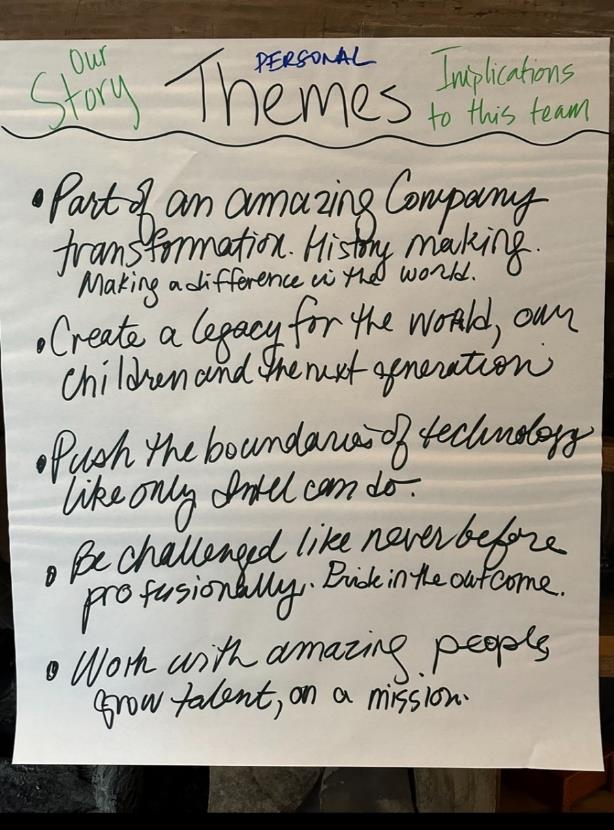 Our
Story
PERSONAL
Themes
Implications
to this team
• Part of an amazing Company
transformation. History making.
Making a difference in the world.
• Create a legacy for the world, our
children and the next generation
• Push the boundaries of technology
like only Intel can do.
• Be challenged like never before
profusionally. Pride in the outcome.
• Work with amazing people
grow talent, on a mission.